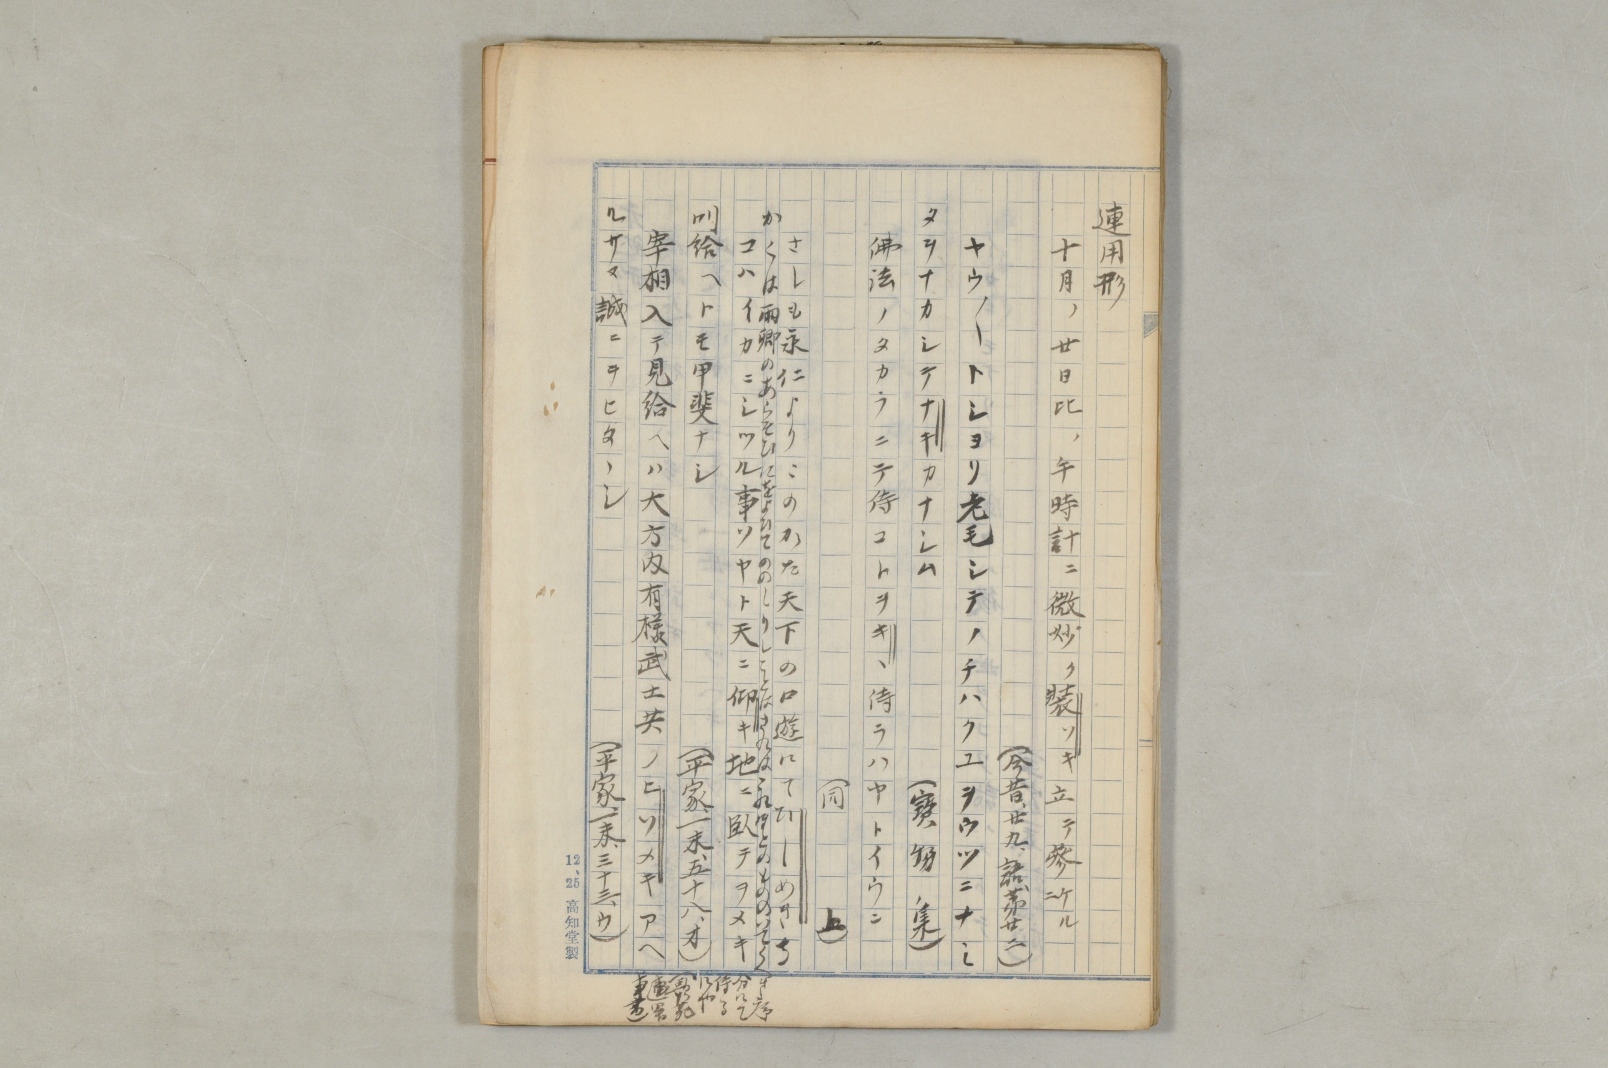 連用形
十月ノ廿日比ノ午時計ニ微妙ク装ソキ立テ参ニケル
（今昔、廿九、話第廿二）
ヤウ〳〵トシヨリ老毛シテノチハクユヲウツニナシ
タヲナカシテナキカナシム
（寶物ノ集）
佛法ノタカラニテ侍コトヲキヽ侍ラハヤトイウニ
（同上）
さしも永仁よりこのかた天下の口遊にてひしめき
かくは両卿のあらそひにをよひてののしりし
コハイカニシツル事ソヤト天ニ仰キ地ニ臥テヲメキ
叫給ヘトモ甲斐ナシ
（平家、一末、五十八、オ）
宰相入テ見給ヘハ大方内有様武士共ノヒソメキアヘ
ルサマ誠ニヲヒタヽシ
（平家、一末、三十三、ウ）
12、25 高知堂製